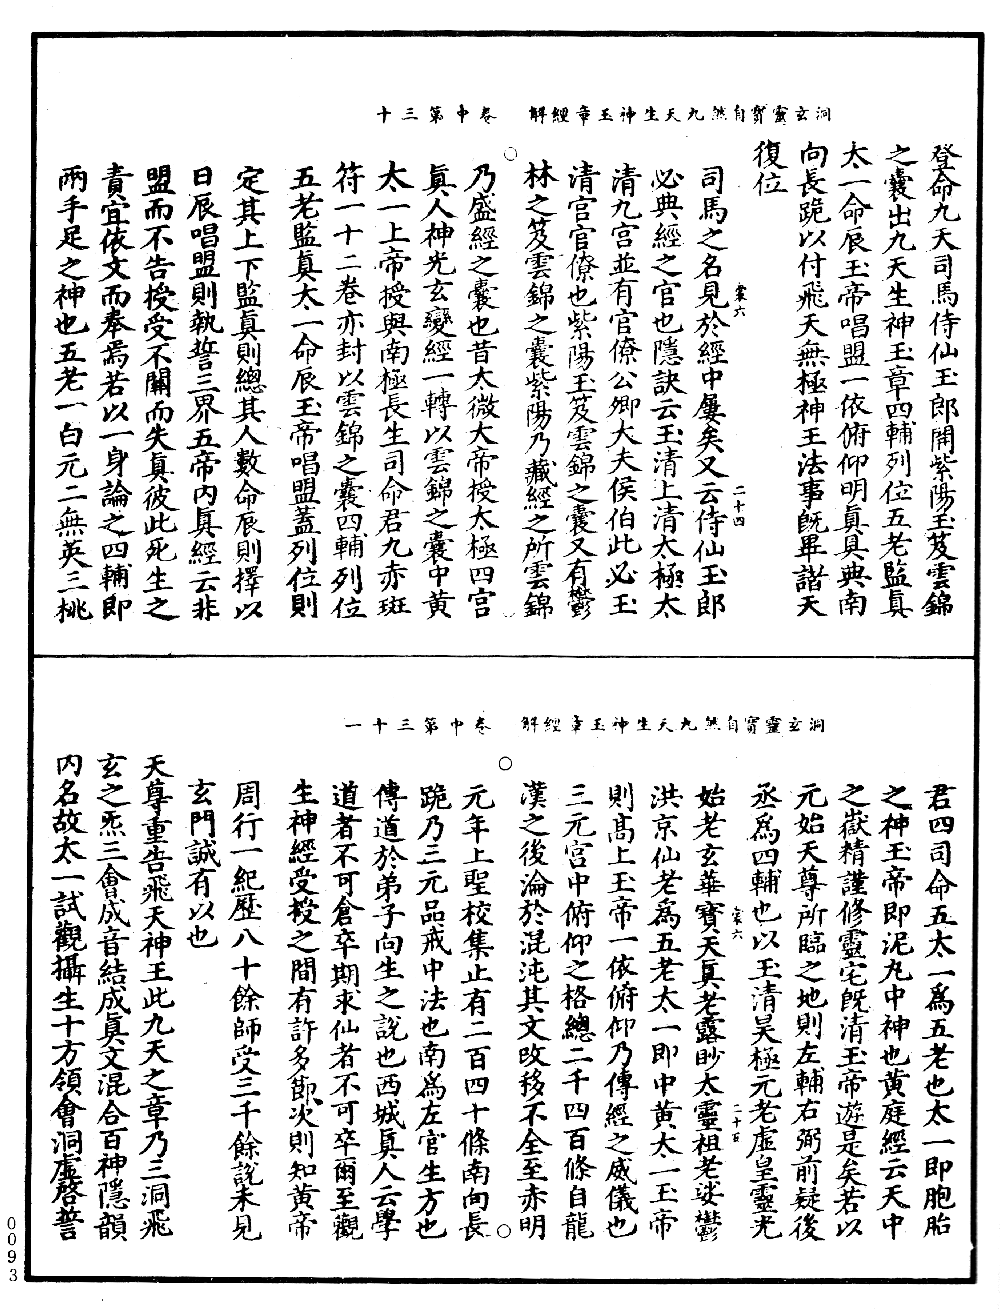 洞玄靈寳自然九天生神玉章經解　卷中第三十
登命九天司馬侍仙玉郎開紫陽玉笈雲錦
之囊出九天生神玉章四輔列位五老監眞
太一命辰玉帝唱盟一依俯仰明眞具典南
向長跪以付飛天無極神王法事旣畢諸天
復位
裳六　二十四
司馬之名見於經中屢矣又云侍仙玉郎
必典經之官也隱訣云玉清上清太極太
清九宮並有官僚公卿大夫侯伯此必玉
清官官僚也紫陽玉笈雲錦之囊又有鬱
林之笈雲錦之囊紫陽乃藏經之所雲錦
乃盛經之囊也昔太微大帝授太極四宮
眞人神光玄變經一轉以雲錦之囊中黄
太一上帝授與南極長生司命君九赤斑
符一十二卷亦封以雲錦之囊四輔列位
五老監眞太一命辰玉帝唱盟蓋列位則
定其上下監眞則總其人數命辰則擇以
日辰唱盟則執誓三界五帝内眞經云非
盟而不告授受不關而失眞彼此死生之
責宜依文而奉焉若以一身論之四輔即
兩手足之神也五老一白元二無英三桃
洞玄靈寳自然九天生神玉章經解　卷中第三十一
君四司命五太一爲五老也太一即胞胎
之神玉帝即泥丸中神也黄庭經云天中
之嶽精謹修靈宅旣清玉帝遊是矣若以
元始天尊所臨之地則左輔右弼前疑後
丞爲四輔也以玉清昊極元老虛皇靈光
裳六　二十五
始老玄華寳天眞老露眇太靈祖老逑鬱
洪京仙老爲五老太一即中黄太一玉帝
則髙上玉帝一依俯仰乃傳經之威儀也
三元宮中俯仰之格總二千四百條自龍
漢之後淪於混沌其文改移不全至赤明
元年上聖校集止有二百四十條南向長
跪乃三元品戒中法也南爲左官生方也
傳道於弟子向生之說也西城眞人云學
道者不可倉卒期求仙者不可卒爾至觀
生神經受授之間有許多節次則知黄帝
周行一紀歷八十餘師受三千餘說未見
玄門誠有以也
天尊重告飛天神王此九天之章乃三洞飛
玄之炁三會成音結成眞文混合百神隱韻
内名故太一試觀攝生十方領會洞虛啓誓
0093